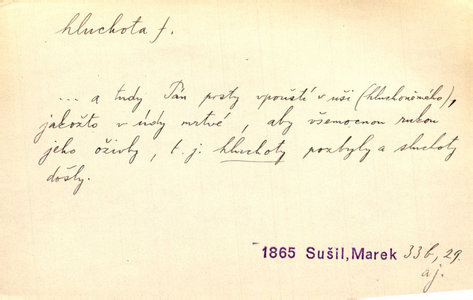 hluchota f.
... a tudy Pán prsty vpouští v uši (hluchoněmého),
jakožto v údy mrtvé, aby všemocnou rukou
jeho oživly, t. j. hluchoty pozbyly a sluchoty
došly.
1865 Sušil, Marek 33b, 29.
aj.